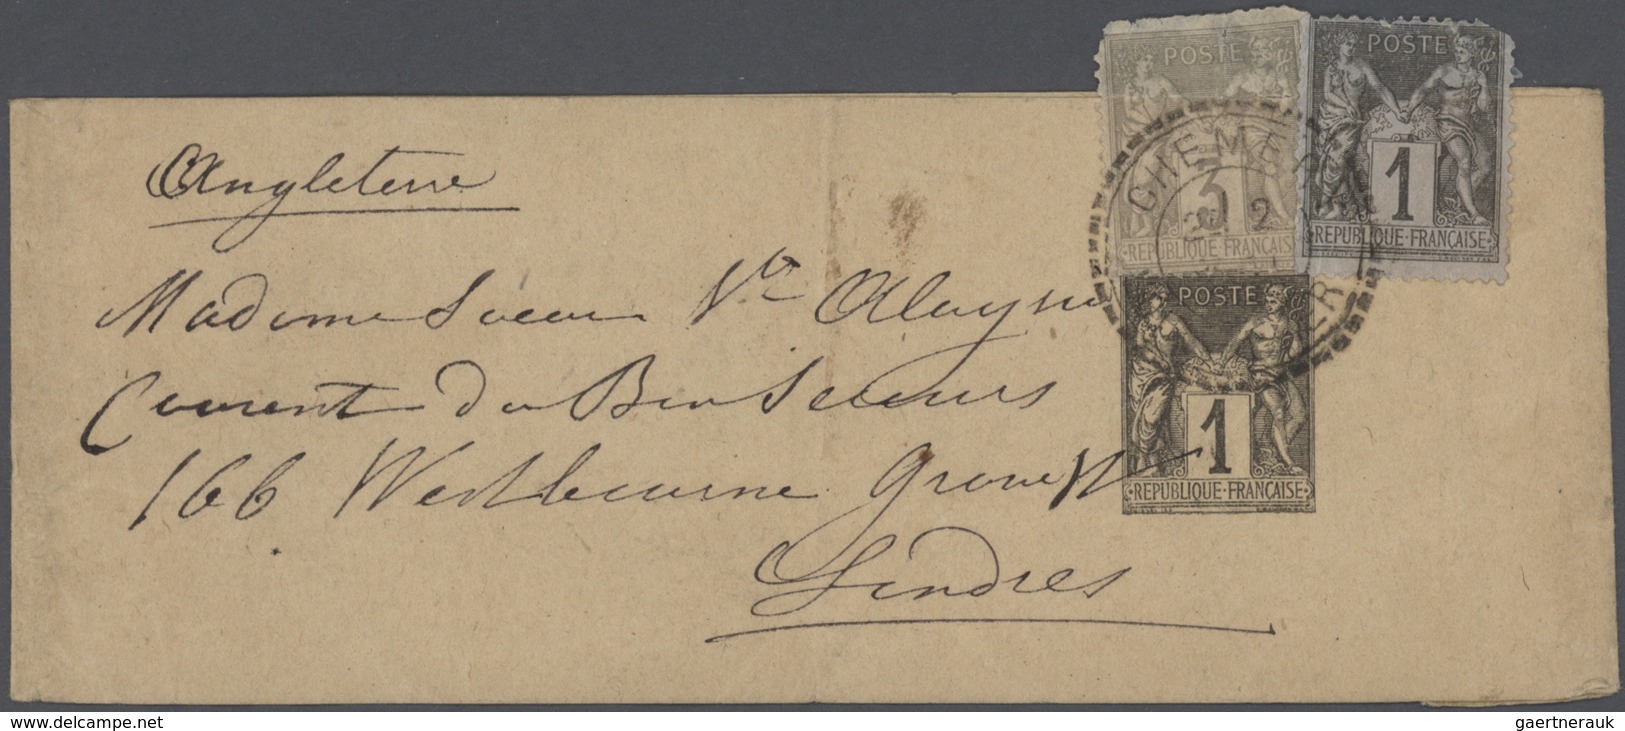 Angleterre
Madame Soeur Ve Aloyse
Couvent du Bon Secours
166 Westbourne Grove W
Londres
POSTE
3
REPUBLIQUE·FRANÇAISE
POSTE
1
REPUBLIQUE·FRANÇAISE
CHEMER
2
ER
POSTE
1
REPUBLIQUE·FRANÇAISE
www.delcampe.net
gaertnerauk